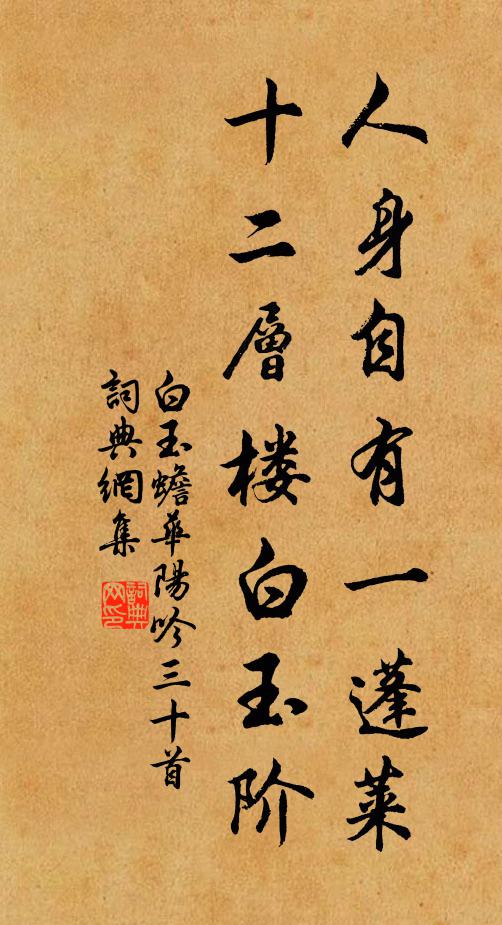 人身自有一蓬莱
十二層楼白玉阶
白玉蟾華陽吟三十首
詞典網集
詞典网印